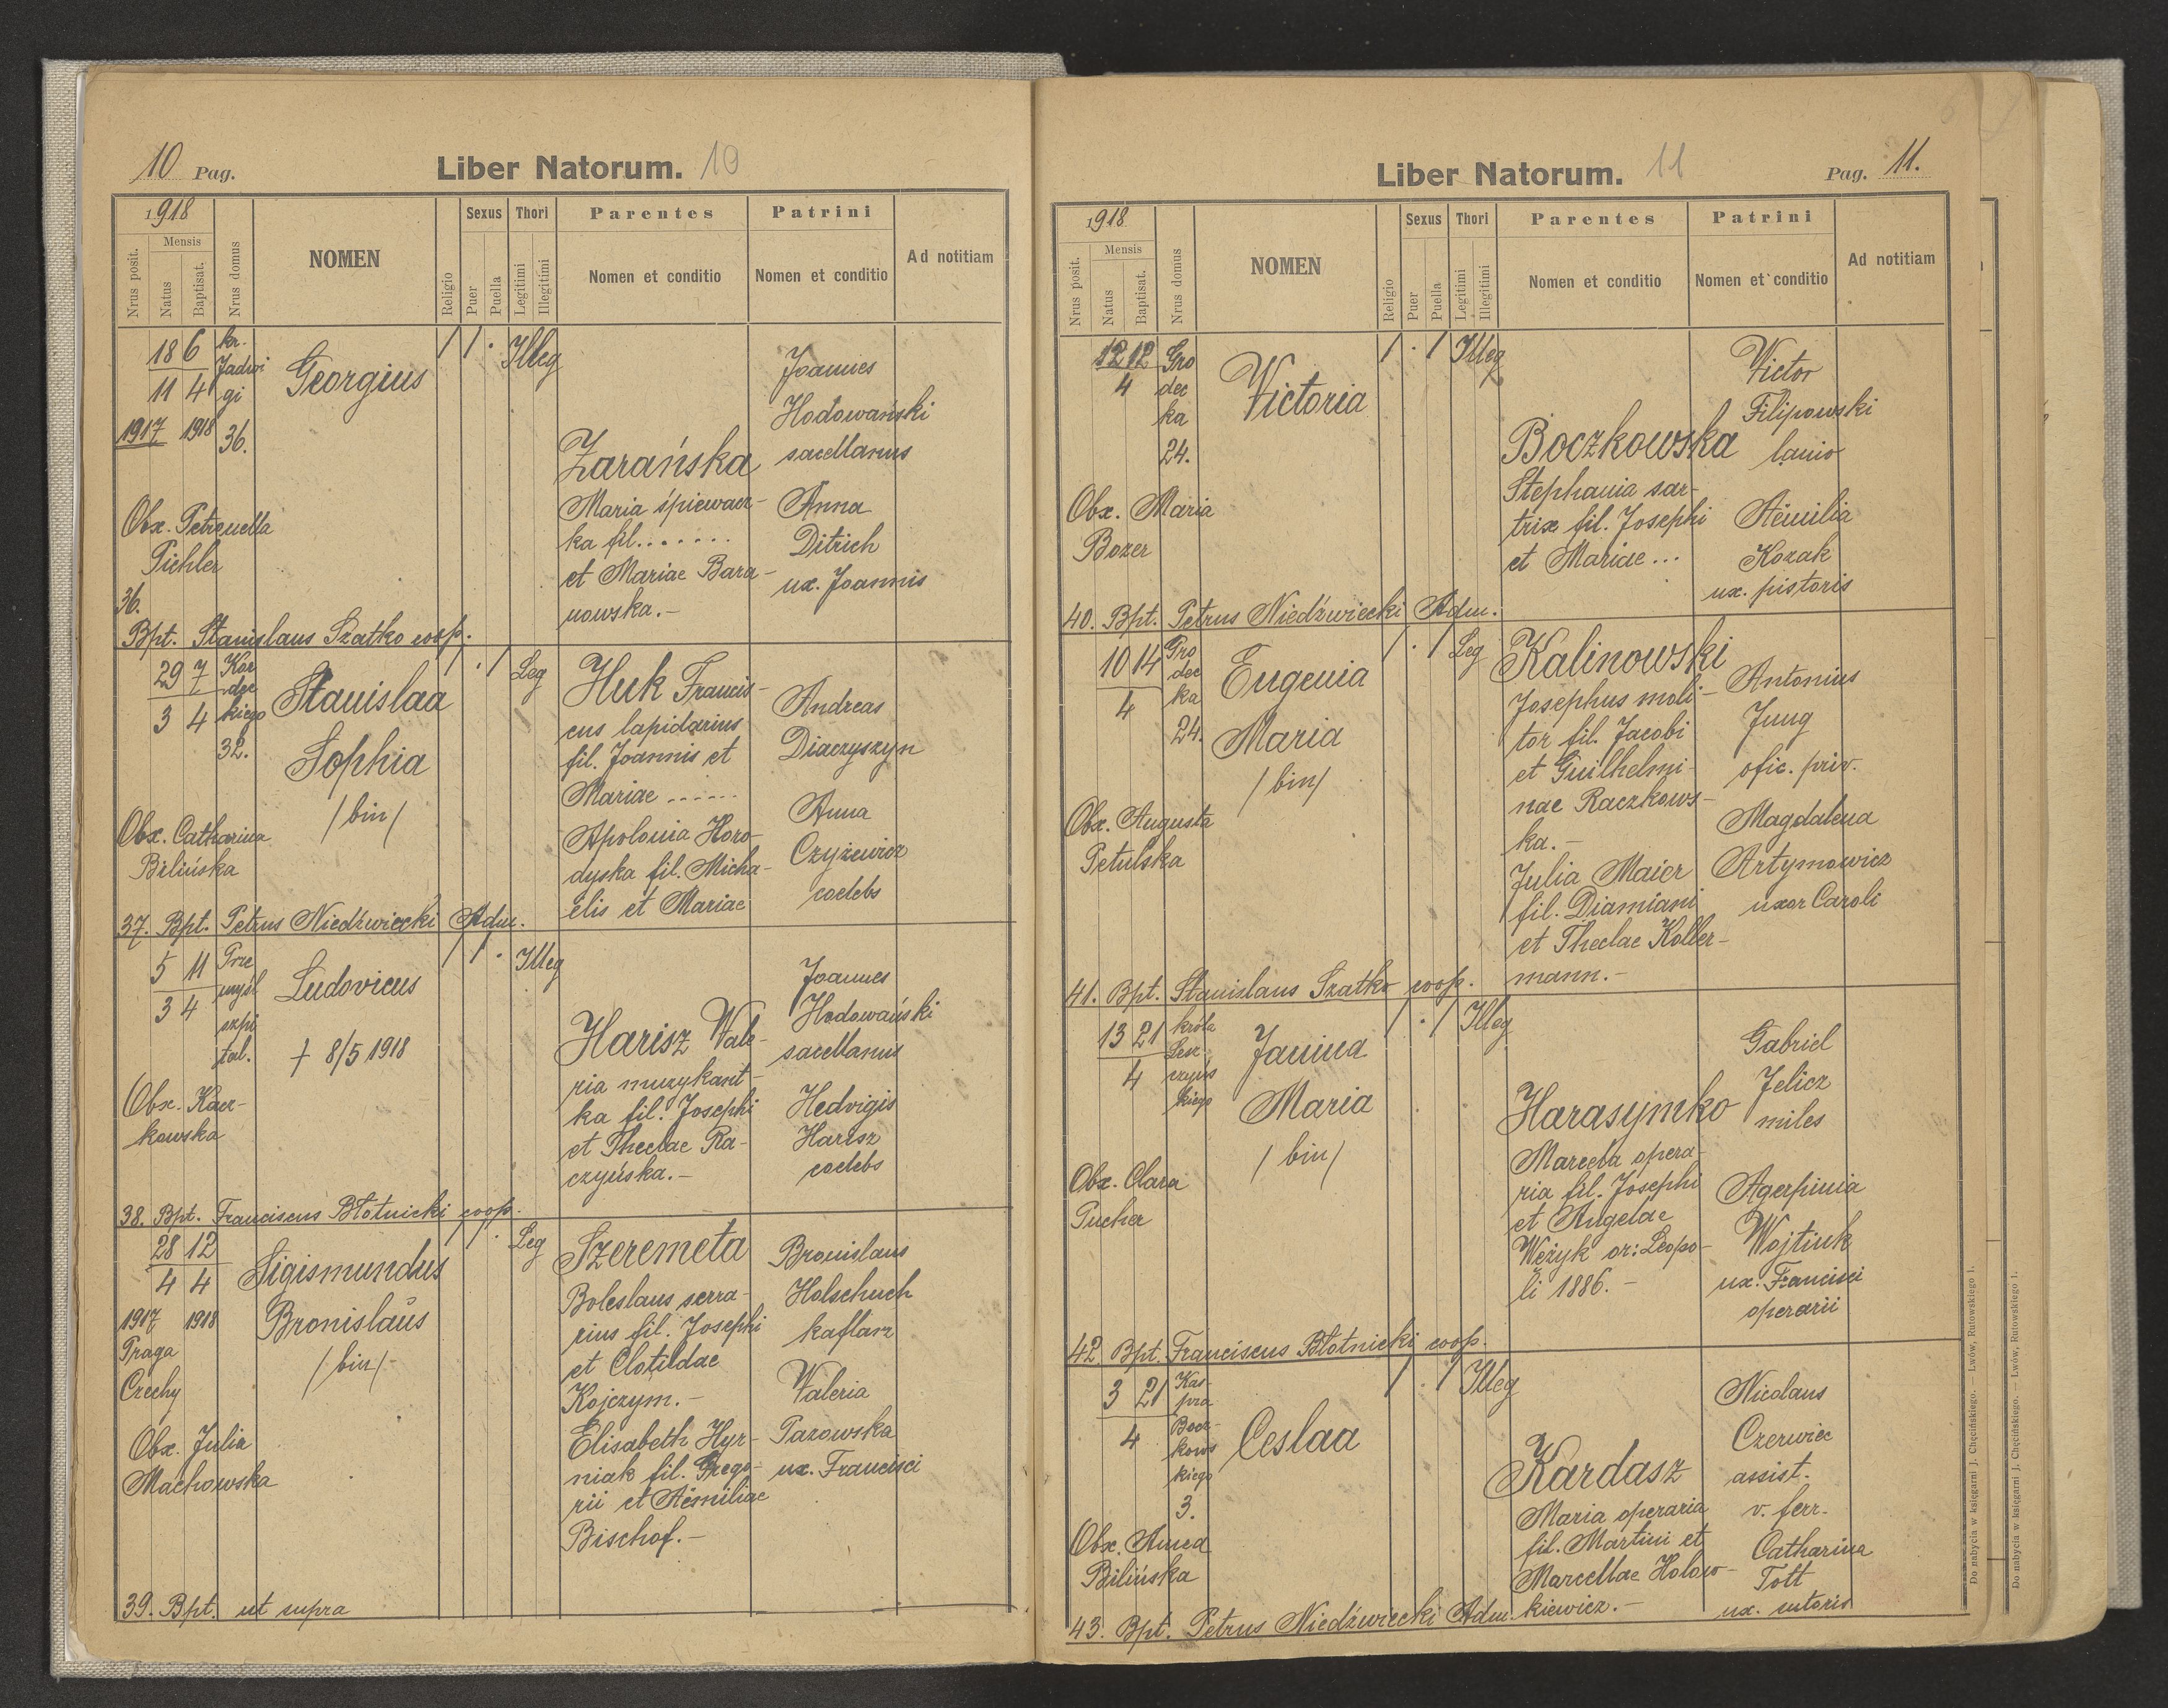 10 Pag.
Liber Natorum. 10
1918
Nrus posit.
Mensis
Natus
Baptisat.
Nrus domus
NOMEN
Religio
Sexus
Puer
Puella
Thori
Legitimi
Illegitimi
Parentes
Nomen et conditio
Patrini
Nomen et conditio
Ad notitiam
18 6
11 4
1917 1918
kr.
Jadwi
gi
36.
Georgius
1 1 . Illeg
Zarańska
Maria śpiewacz-
ka fil.......
et Mariae Bara-
nowska.-
Joannes
Hodowański
sacellanus
Anna
Ditrich
ux. Joannis
Obx. Petronella
Pichler
36.
Bpt. Stanislaus Szatko coop.
29 7
3 4
Kor
dec
kiego
32.
Stanislaa
Sophia
/bin/
1 . 1 Leg
Huk Francis-
cus lapidarius
fil. Joannis et
Mariae ......
Apolonia Horo-
dyska fil. Micha-
elis et Mariae
Andreas
Diaczyszyn
Anna
Czyżewicz
coelebs
Obx. Catharina
Bilińska
37. Bpt. Petrus Niedźwiecki Adm.
5 11
3 4
Prze
myśl
szpi
tal.
Ludovicus
+ 8/5 1918
1 1 . Illeg
Harisz Vale-
ria muzykant-
ka fil. Josephi
et Theclae Ra-
czyńska.-
Joannes
Hodowański
sacellanus
Hedvigis
Harisz
coelebs
Obx. Kacz-
kowska
38. Bpt. Franciscus Błotnicki coop.
28 12
4 4
1917 1918
Praga
Czechy
Sigismundus
Bronislaus
/bin/
1 1 . Leg
Szeremeta
Boleslaus serra-
rius fil. Josephi
et Clotildae
Kojczym.-
Elisabeth Hyr-
niak fil. Grego-
rii et Aemiliae
Bischof.-
Bronislaus
Holschuch
kaflarz
Valeria
Pazowska
ux. Francisci
Obx. Julia
Machowska
39. Bpt. ut supra
Liber Natorum. 11
Pag. 11.
1918
Nrus posit.
Mensis
Natus
Baptisat.
Nrus domus
NOMEN
Religio
Sexus
Puer
Puella
Thori
Legitimi
Illegitimi
Parentes
Nomen et conditio
Patrini
Nomen et conditio
Ad notitiam
12 12
4
Gro
dec
ka
24.
Victoria
1 . 1 Illeg
Boczkowska
Stephania sar-
trix fil. Josephi
et Mariae...
Victor
Filipowski
lanio
Aemilia
Kozak
ux. pistoris
Obx. Maria
Bozer
40. Bpt. Petrus Niedźwiecki Adm.
10 14
4
Gro
dec
ka
24.
Eugenia
Maria
/bin/
1 . 1 Leg
Kalinowski
Josephus moli-
tor fil. Jacobi
et Guilhelmi-
nae Raczkows-
ka.-
Julia Maier
fil. Diamiani
et Theclae Koller-
mann.-
Antonius
Jung
ofic. priv.
Magdalena
Artymowicz
uxor Caroli
Obx. Augusta
Petulska
41. Bpt. Stanislaus Szatko coop.
13 21
4
króla
Lesz
czyńs
kiego
Janina
Maria
/bin/
1 . 1 Illeg
Harasymko
Marcela opera-
ria fil. Josephi
et Angelae
Wężyk or: Leopo-
li 1886.-
Gabriel
Jelicz
miles
Agerpinia
Wojtiuk
ux. Francisci
operarii
Obx. Clara
Pucher
42 Bpt. Franciscus Błotnicki coop.
3 21
4
Kas-
pra
Bocz-
kows
kiego
3.
Ceslaa
1 . 1 Illeg
Kardasz
Maria operaria
fil. Martini et
Marcellae Holow-
kiewicz.-
Nicolaus
Czerwiec
assist.
v. ferr.
Catharina
Tott
ux. sutoris
Obx. Anna
Bilińska
43. Bpt. Petrus Niedźwiecki Adm.
Do nabycia w księgarni J. Chęcińskiego. — Lwów, Rutowskiego 1.
Do nabycia w księgarni J. Chęcińskiego. — Lwów, Rutowskiego 1.